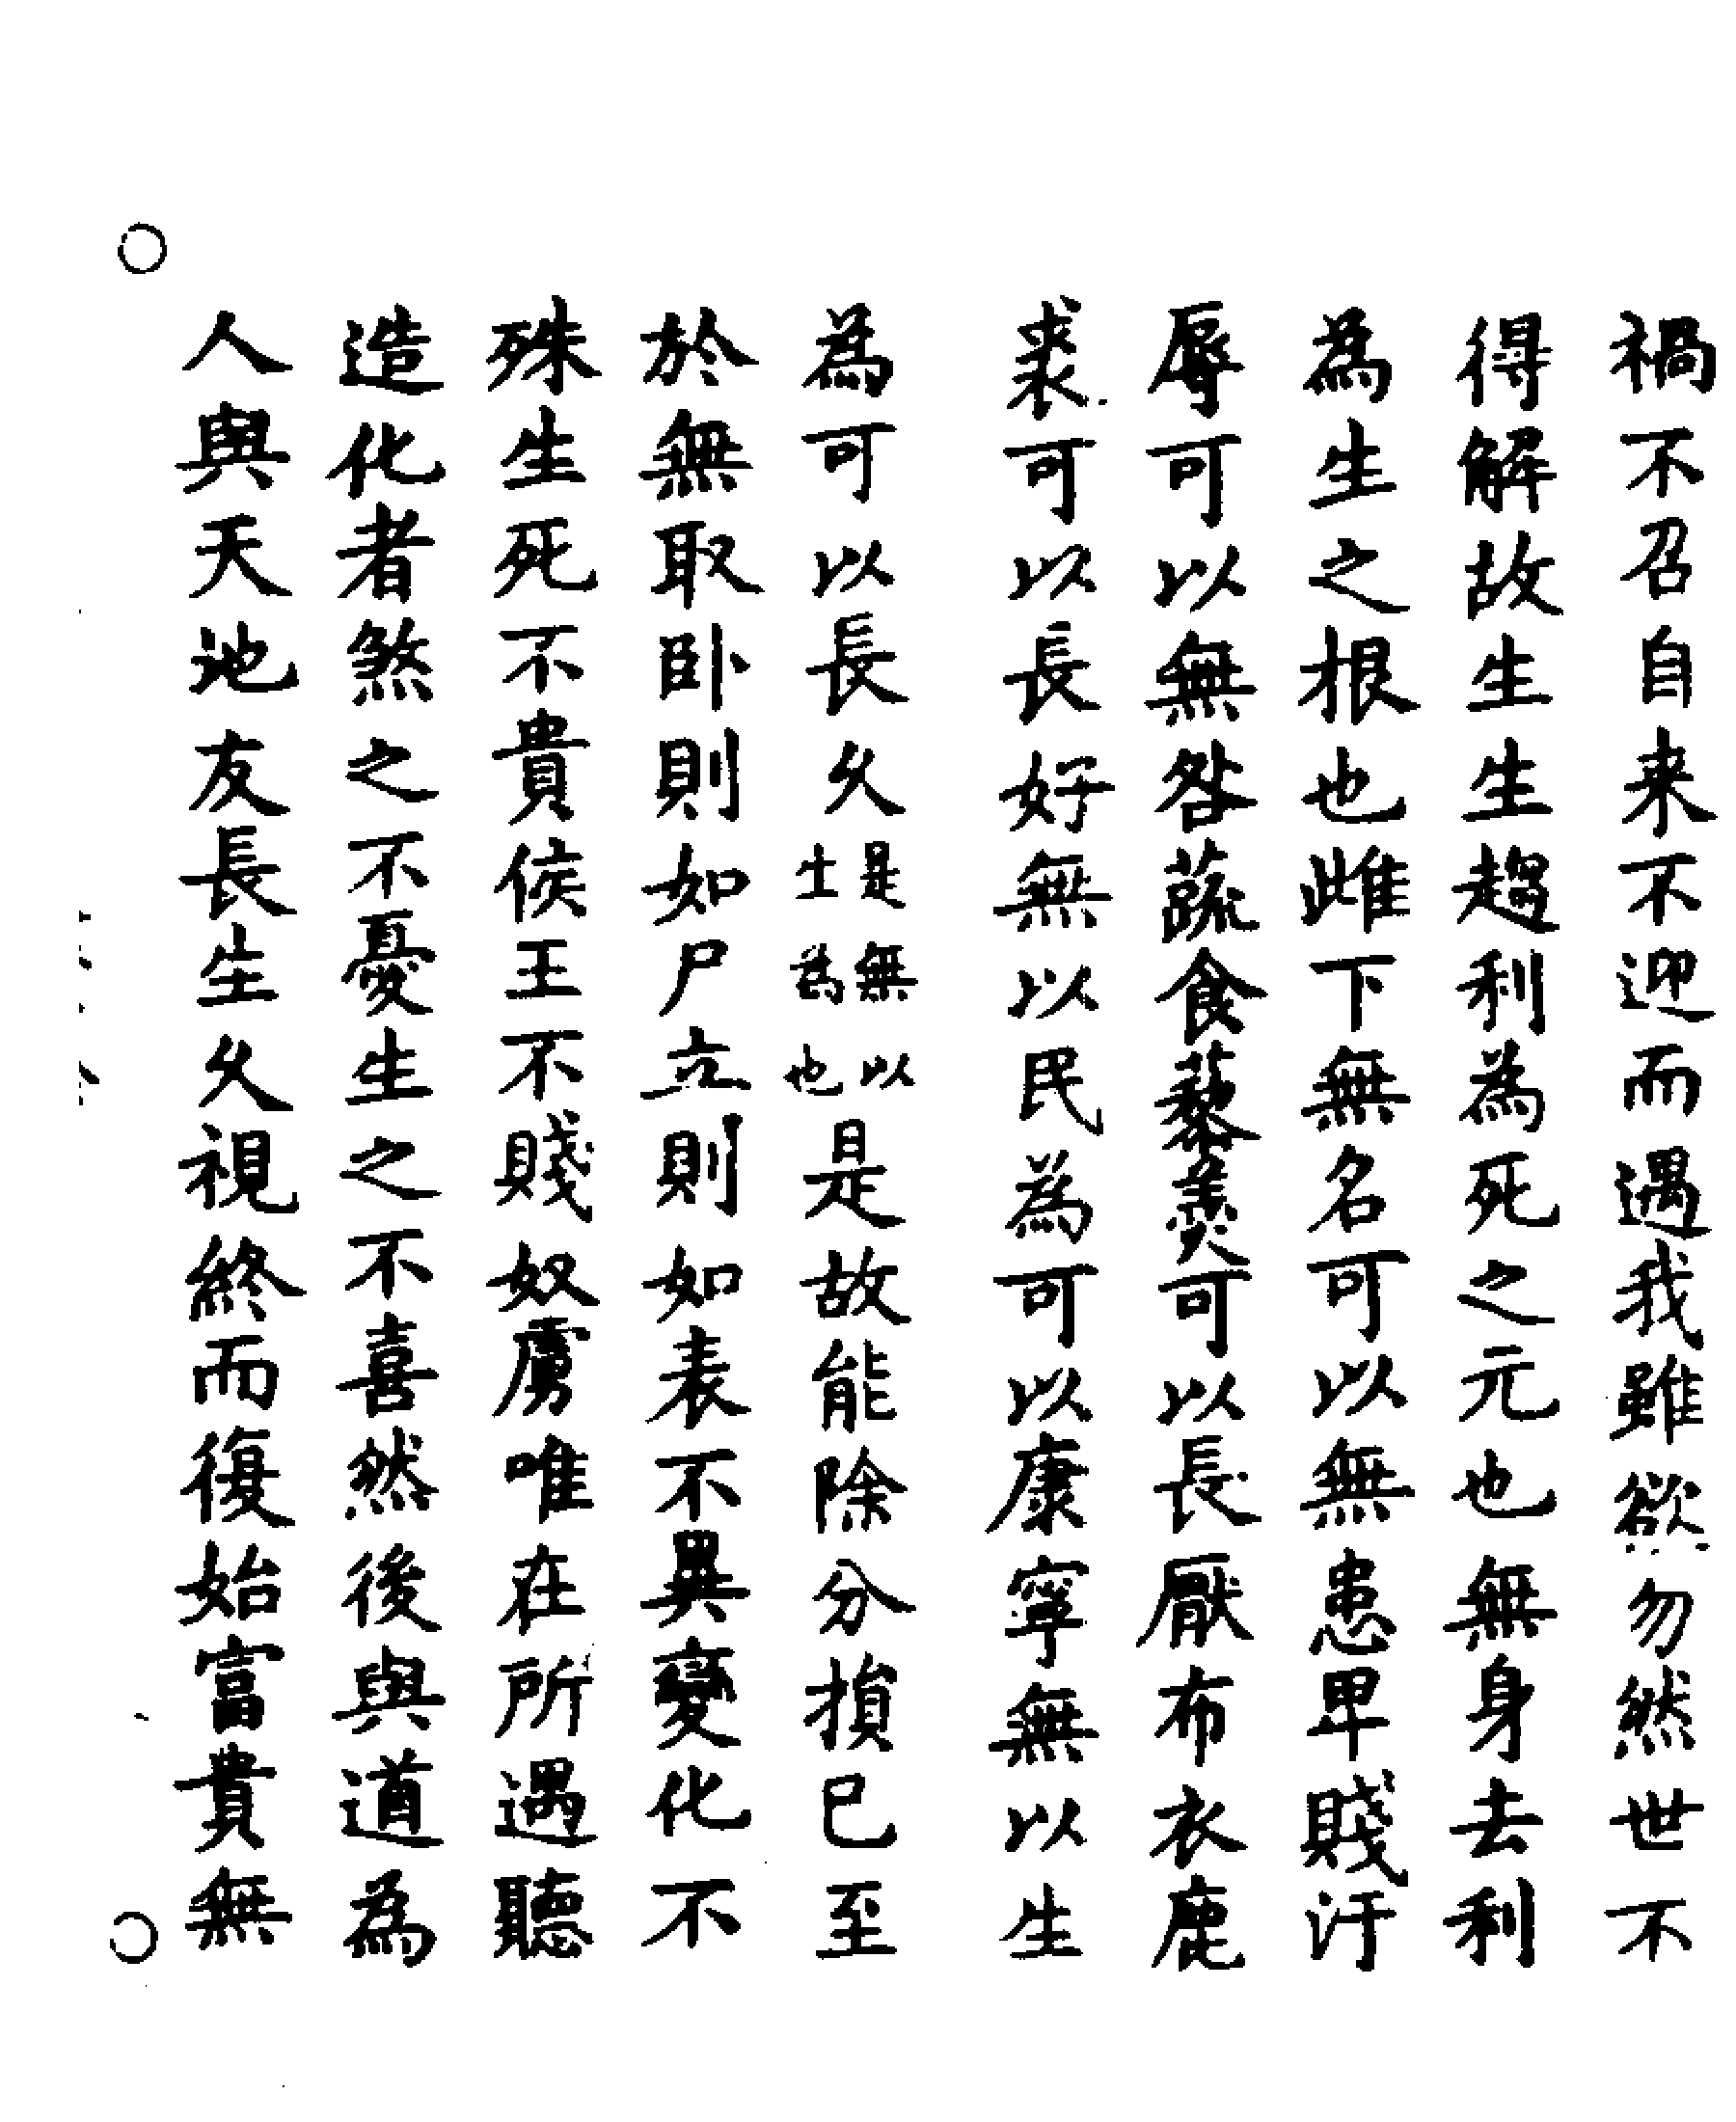 禍不召自来不迎而遇我雖欲勿然世不
得解故生生趨利為死之元也無身去利
為生之根也雌下無名可以無患卑賤汙
辱可以無咎蔬食藜羹可以長厭布衣鹿
裘可以長好無以民為可以康寧無以生
為可以長久是無以士為也是故能除分損已至
於無取卧則如尸立則如表不異變化不
殊生死不貴侯王不賤奴虜唯在所遇聽
造化者煞之不憂生之不喜然後與道為
人與天地友長生久視終而復始富貴無